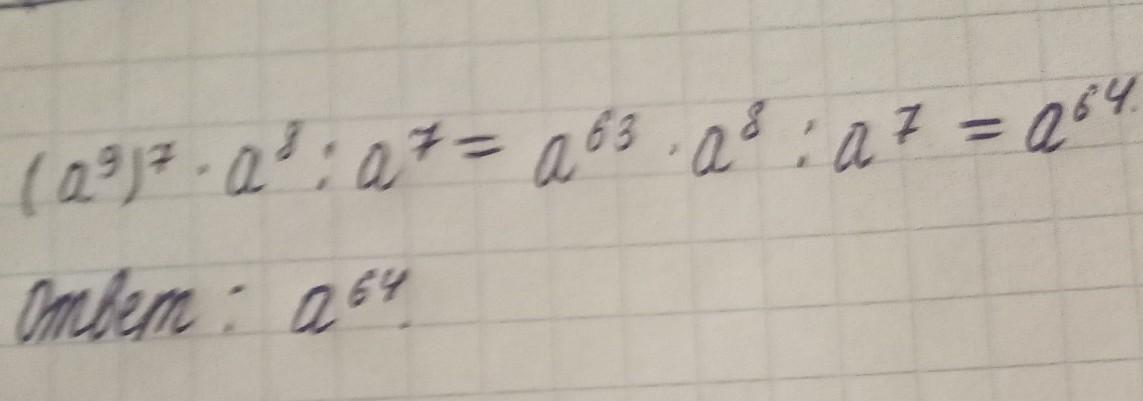 (a⁹)⁷ · a⁸ : a⁷ = a⁶³ · a⁸ : a⁷ = a⁶⁴.
Ответ: a⁶⁴.